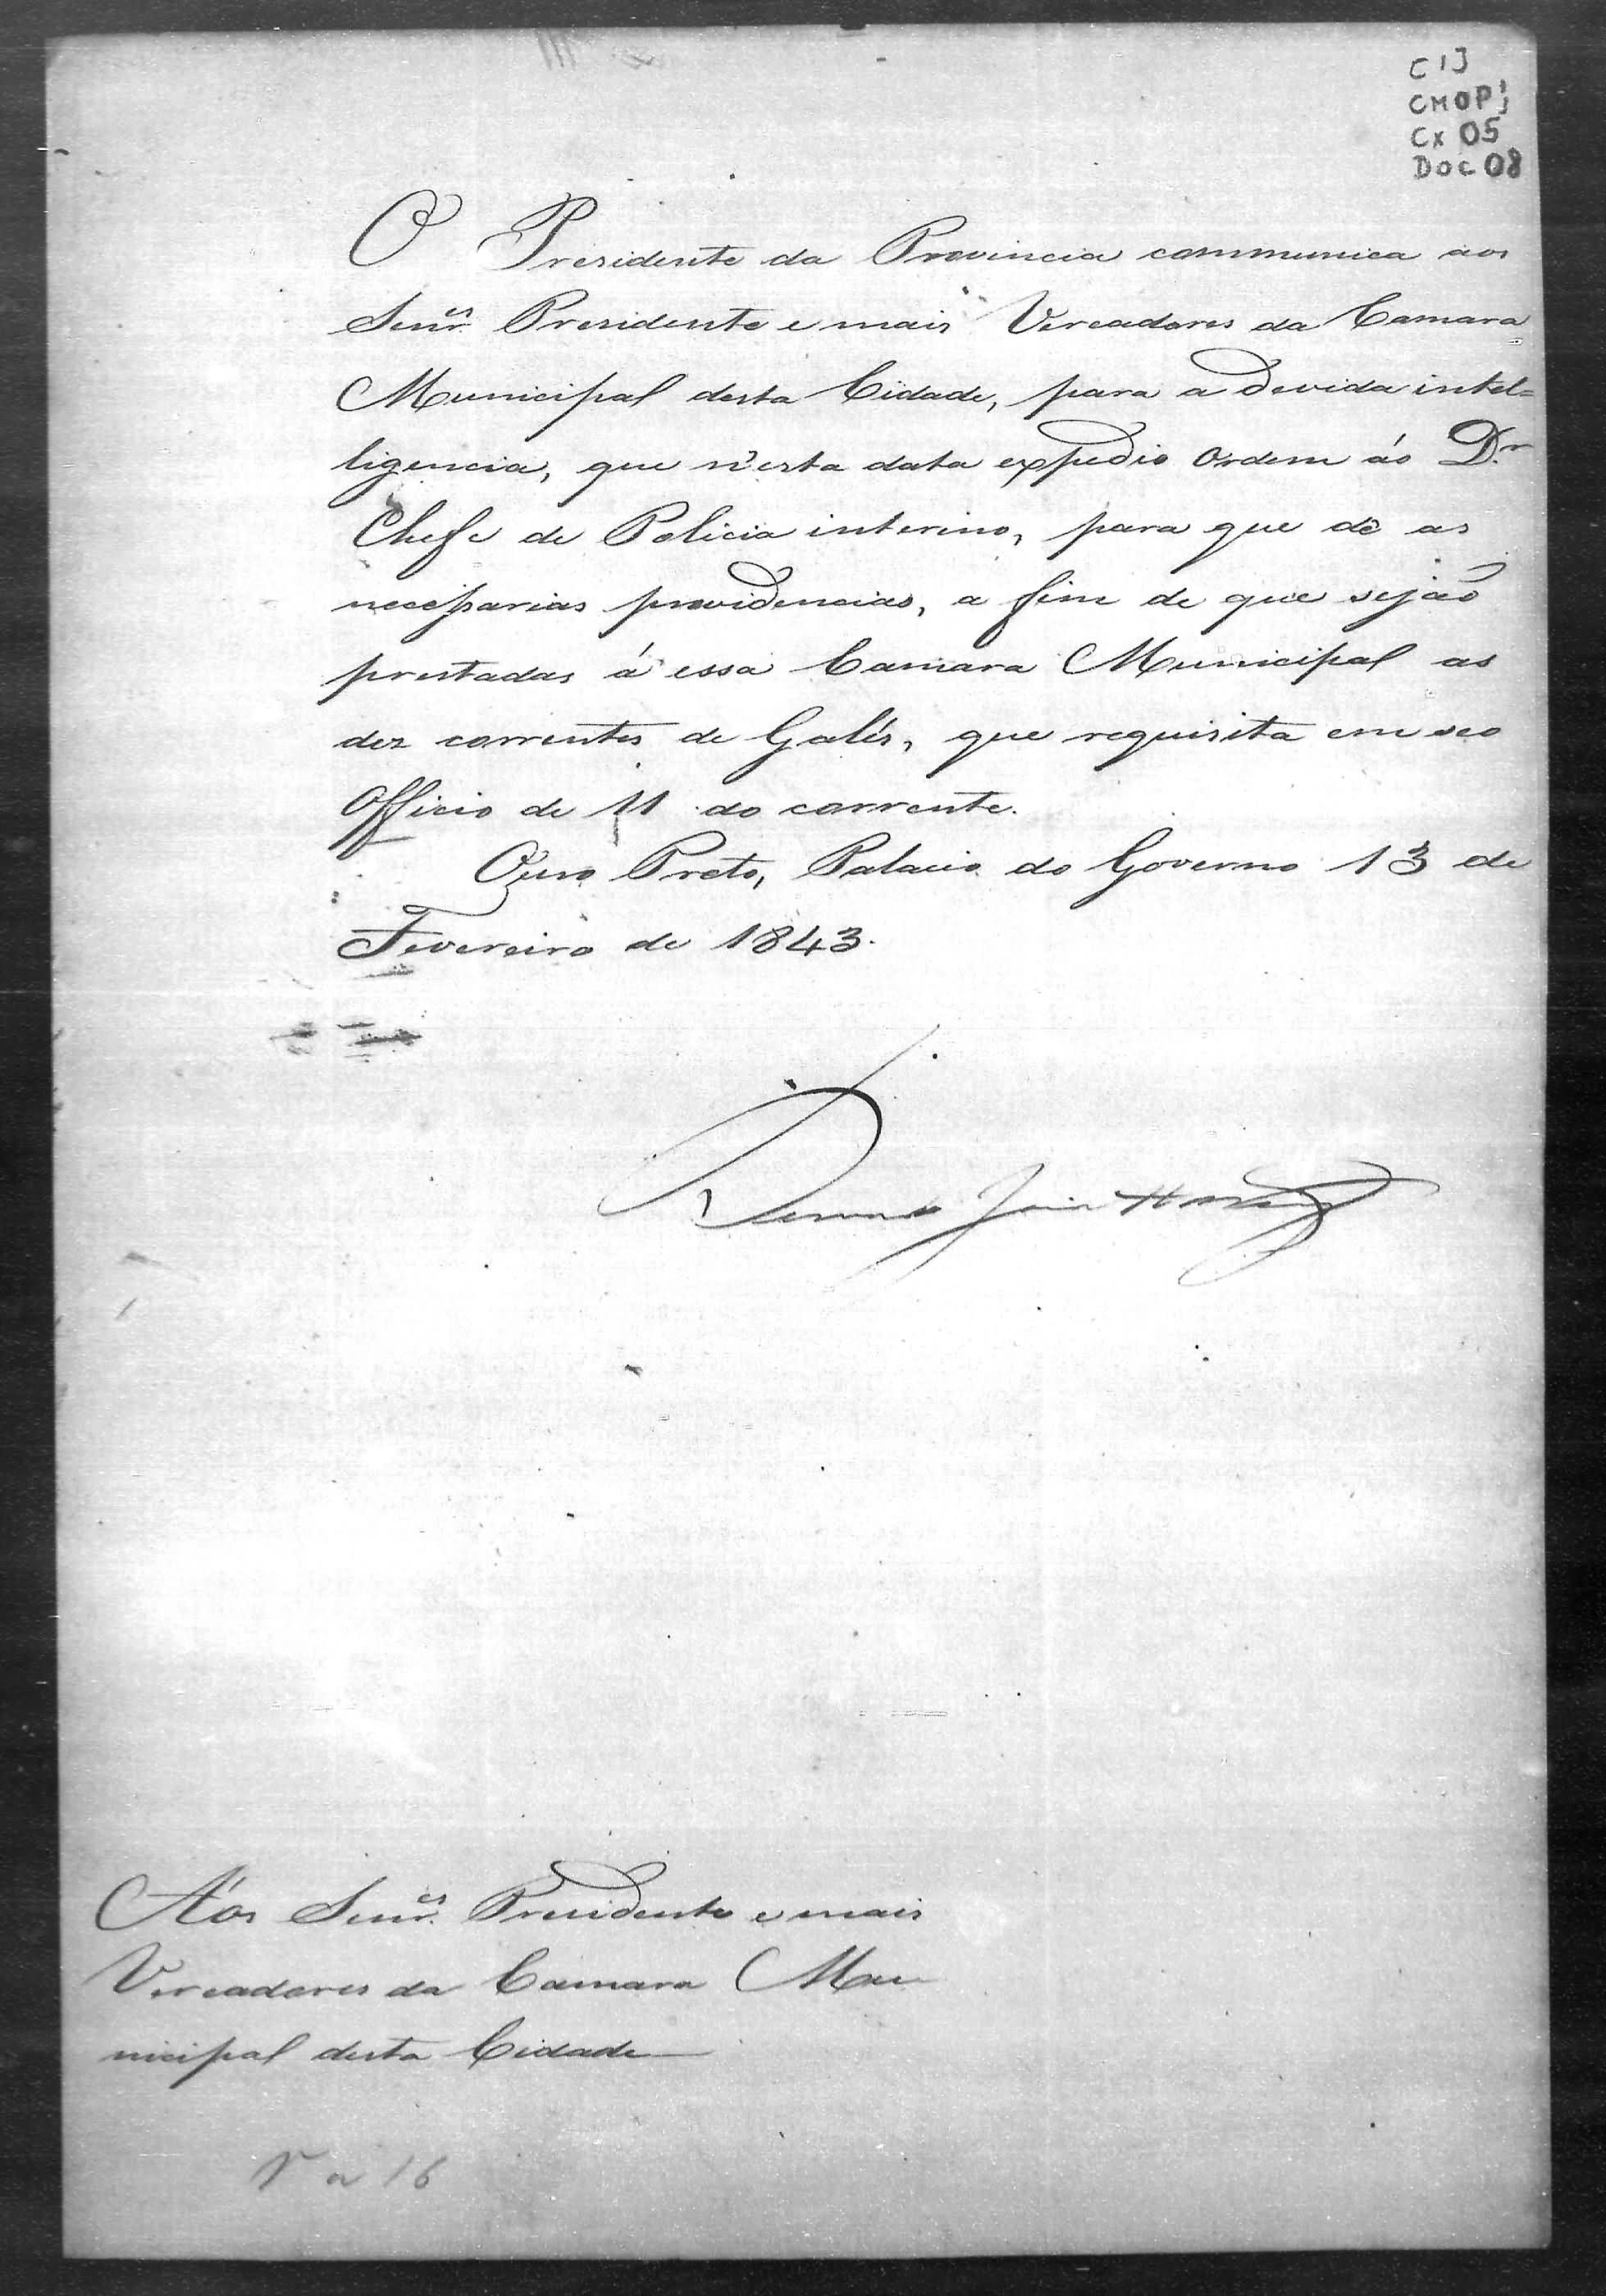 CIJ
CMOP
Cx 05
Doc 08
O Presidente da Provincia communica aos
Senr.es Presidente e mais Vereadores da Camara
Municipal desta Cidade, para a devida intel=
ligencia, que n'esta data expedio Ordem áo Dr.
Chefe de Policia interino, para que dê as
necessarias providencias, a fim de que sejão
prestadas á essa Camara Municipal as
dez correntes de Galés, que requisita em seo
Officio de 11 do corrente.
Ouro Preto, Palacio do Governo 13 de
Fevereiro de 1843.
Aós Senr.es Presidente e mais
Vereadores da Camara Mu
nicipal desta Cidade